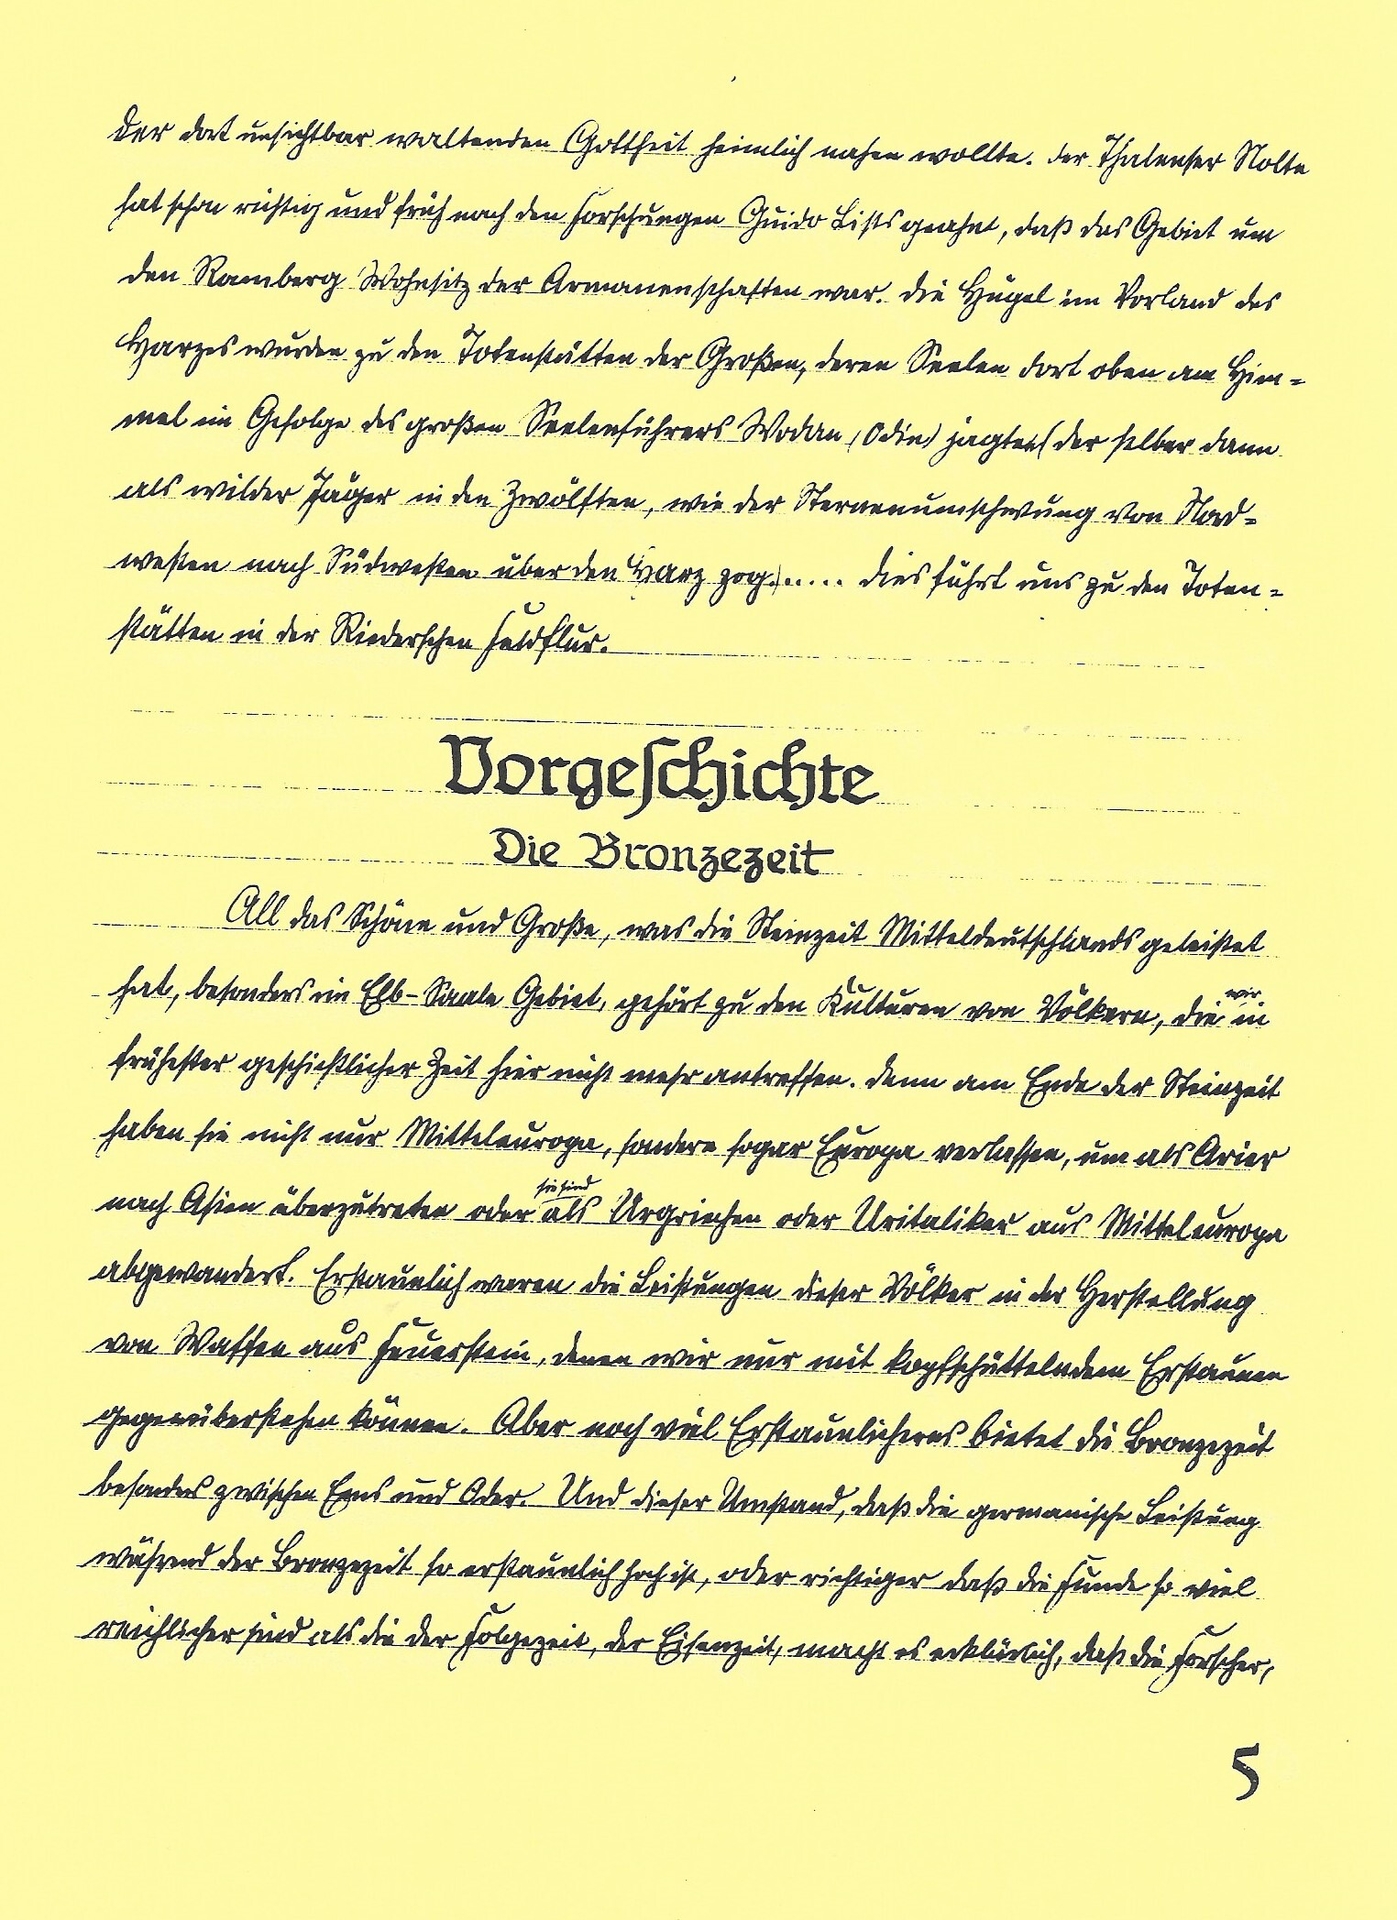 der dort unsichtbar waltenden Gottheit heimlich nahen wollte. Der Thalenser Nolte
hat schon richtig und früh nach den Forschungen Guido Lists geahnt, daß das Gebiet um
den Ramberg Wohnsitz der Armanenschaften war. Die Hügel im Vorland des
Harzes wurden zu den Totenstätten der Großen, deren Seelen dort oben am Him=
mel im Gefolge des großen Seelenführers Wodan (Odin) jagten (der selber dann
als wilder Jäger in den Zwölften, wie der Sternenumschwung von Nord=
westen nach Südwesten über den Harz zog.)..... Dies führt uns zu den Toten=
stätten in der Riederschen Feldflur.
Vorgeschichte
Die Bronzezeit
All das Schöne und Große, was die Steinzeit Mitteldeutschlands geleistet
hat, besonders im Elb-Saale Gebiet, gehört zu den Kulturen von Völkern, die wir in
frühester geschichtlicher Zeit hier nicht mehr antreffen. Denn am Ende der Steinzeit
haben sie nicht nur Mitteleuropa, sondern sogar Europa verlassen, um als Arier
nach Asien überzutreten oder sie sind als Urgriechen oder Uritaliker aus Mitteleuropa
abgewandert. Erstaunlich waren die Leistungen dieser Völker in der Herstellung
von Waffen aus Feuerstein, denen wir nur mit kopfschüttelndem Erstaunen
gegenüberstehen können. Aber noch viel Erstaunlicheres bietet die Bronzezeit
besonders zwischen Ems und Oder. Und dieser Umstand, daß die germanische Leistung
während der Bronzezeit so erstaunlich hoch ist, oder richtiger daß die Funde so viel
reichlicher sind als die der Folgezeit, der Eisenzeit, macht es erklärlich, daß die Forscher,
5